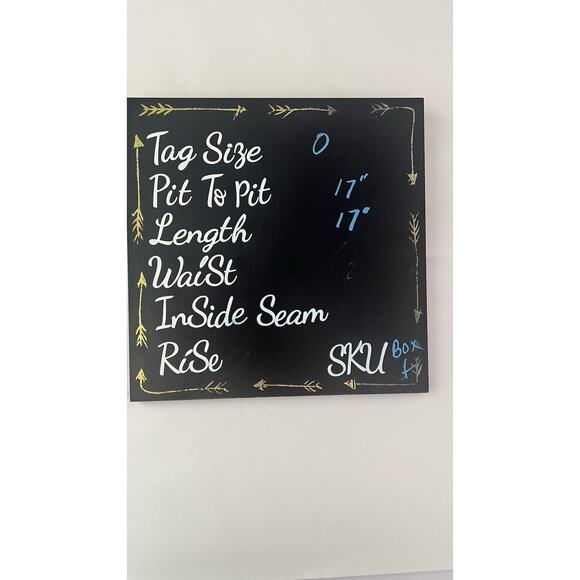 Tag Size 0
Pit To Pit 17"
Length 17"
Waist
Inside Seam
Rise SKU Box